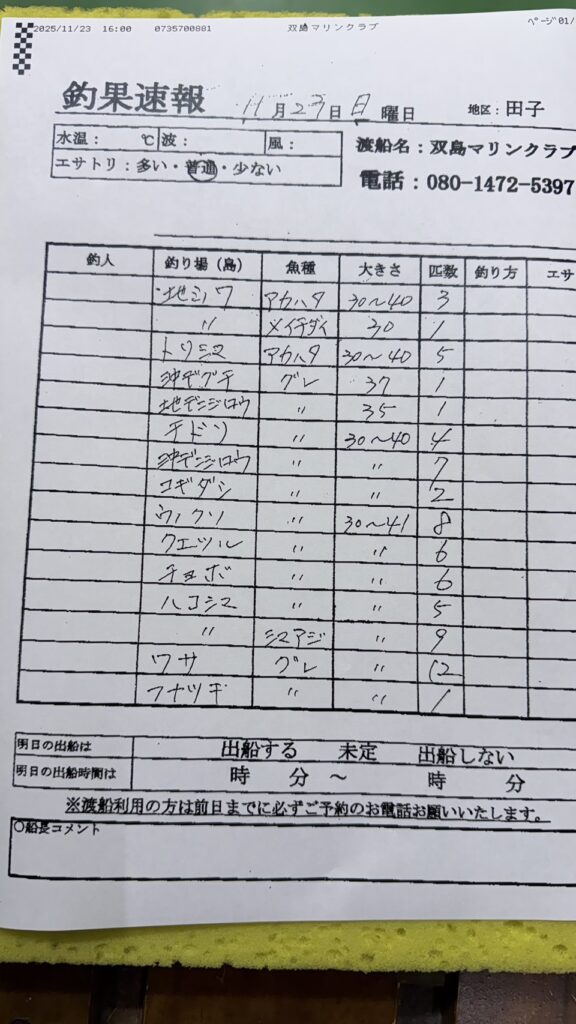 2025/11/23 16:00 0735700881 双島マリンクラブ ページ01/
釣果速報 11月23日 日 曜日 地区：田子
水温： ℃ 波： 風：
渡船名：双島マリンクラブ
エサトリ：多い・普通・少ない
電話：080-1472-5397
釣人 釣り場（島） 魚種 大きさ 匹数 釣り方 エサ
地シワ アカハタ 30〜40 3
〃 メイチダイ 30 1
トリシマ アカハタ 30〜40 5
沖モグチ グレ 37 1
地デンジロウ 〃 35 1
チドリ 〃 30〜40 4
沖デンジロウ 〃 〃 7
コギダシ 〃 〃 2
ウノクソ 〃 30〜41 8
クエヅル 〃 〃 6
チョボ 〃 〃 6
ハコシマ 〃 〃 5
〃 シマアジ 〃 9
ワサ グレ 〃 12
フナツキ 〃 〃 1
明日の出船は 出船する 未定 出船しない
明日の出船時間は 時 分 〜 時 分
※渡船利用の方は前日までに必ずご予約のお電話お願いいたします。
○船長コメント